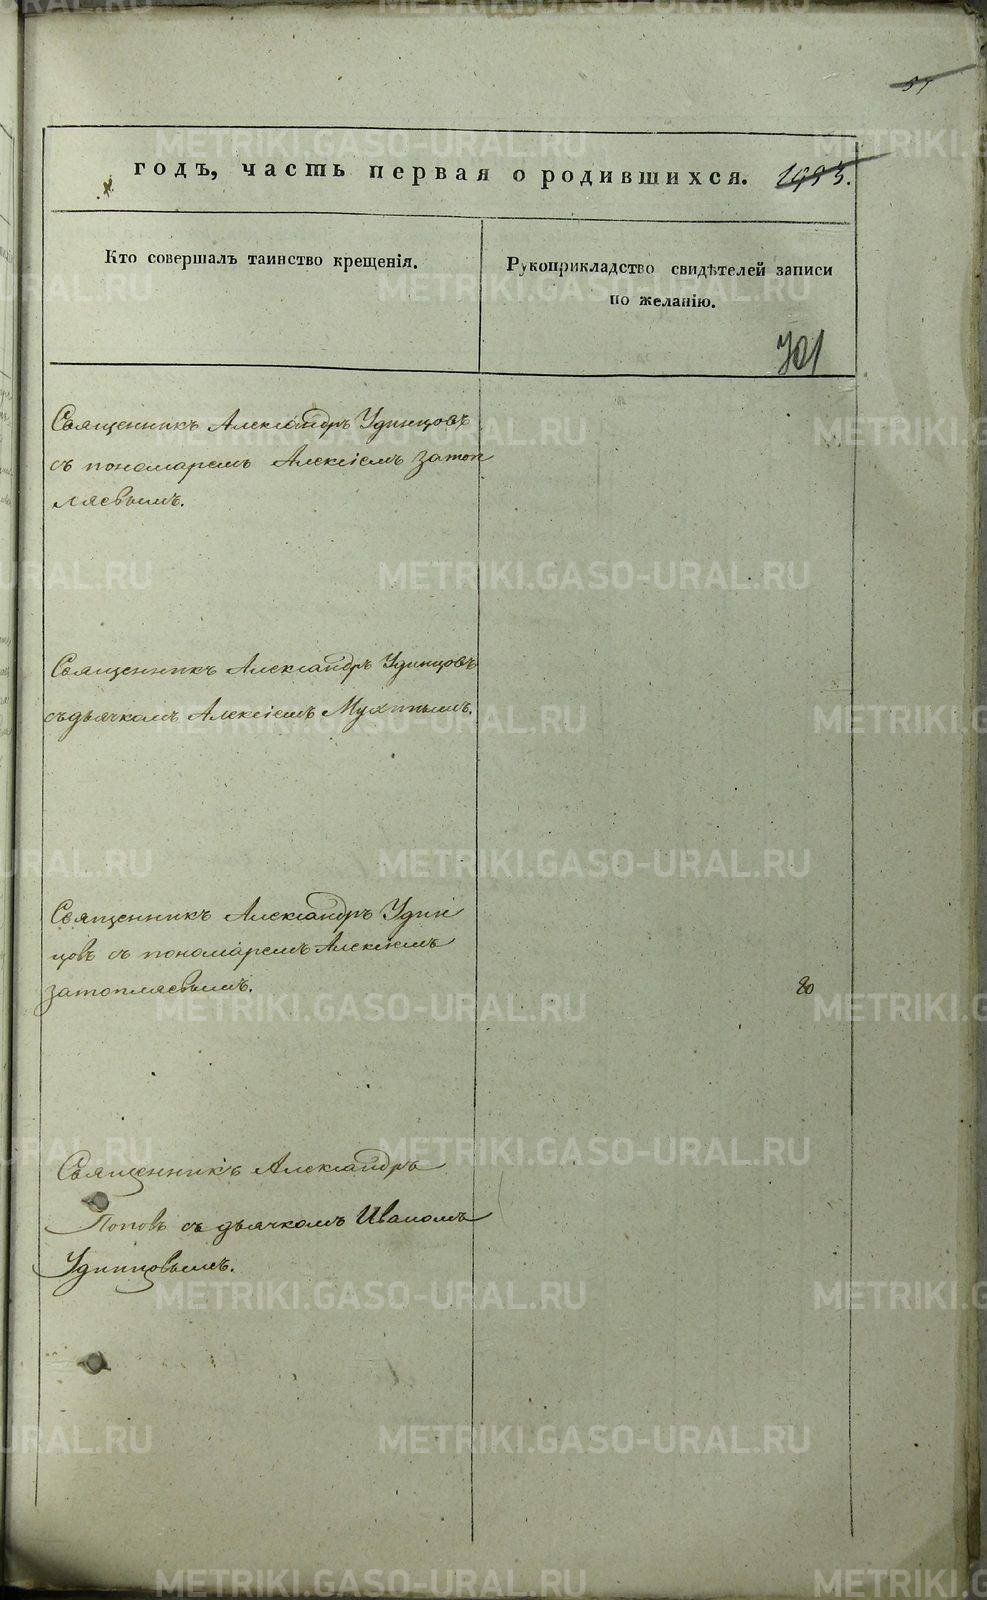 57
годъ, часть первая о родившихся. 1993.
Кто совершалъ таинство крещенія.
Рукоприкладство свидѣтелей записи
по желанію.
701
Священникъ Александръ Удинцовъ
съ пономаремъ Алексіемъ Затоп
ляевымъ.
Священникъ Александръ Удинцовъ
съ дьячкомъ Алексіемъ Мухинымъ.
Священникъ Александръ Удин
цовъ съ пономаремъ Алексіемъ
Затопляевымъ.
80
Священникъ Александръ
Поповъ съ дьячкомъ Иваномъ
Удинцовымъ.
METRIKI.GASO-URAL.RU